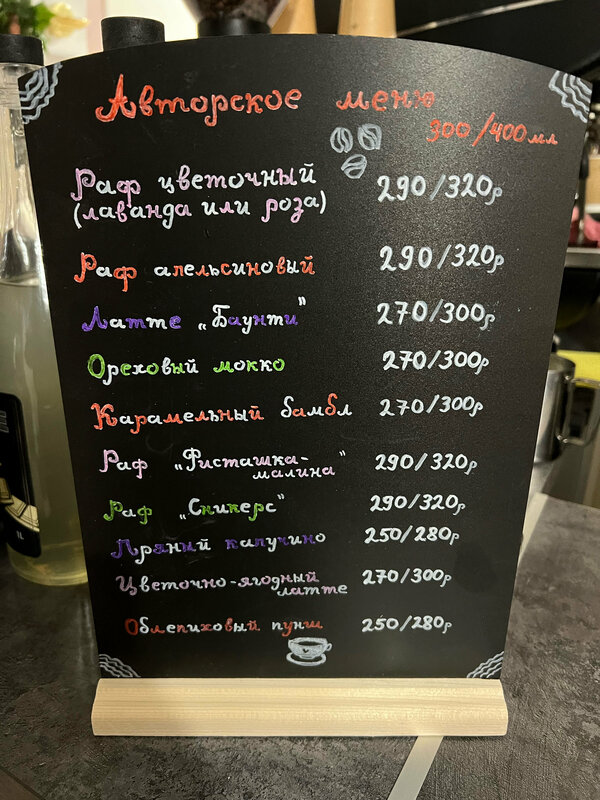 Авторское меню
300/400 мл
Раф цветочный
(лаванда или роза) 290/320р
Раф апельсиновый 290/320р
Латте „Баунти" 270/300р
Ореховый мокко 270/300р
Карамельный бамбл 270/300р
Раф „Фисташка-
малина" 290/320р
Раф „Сникерс" 290/320р
Пряный капучино 250/280р
Цветочно-ягодный
латте 270/300р
Облепиховый пунш 250/280р